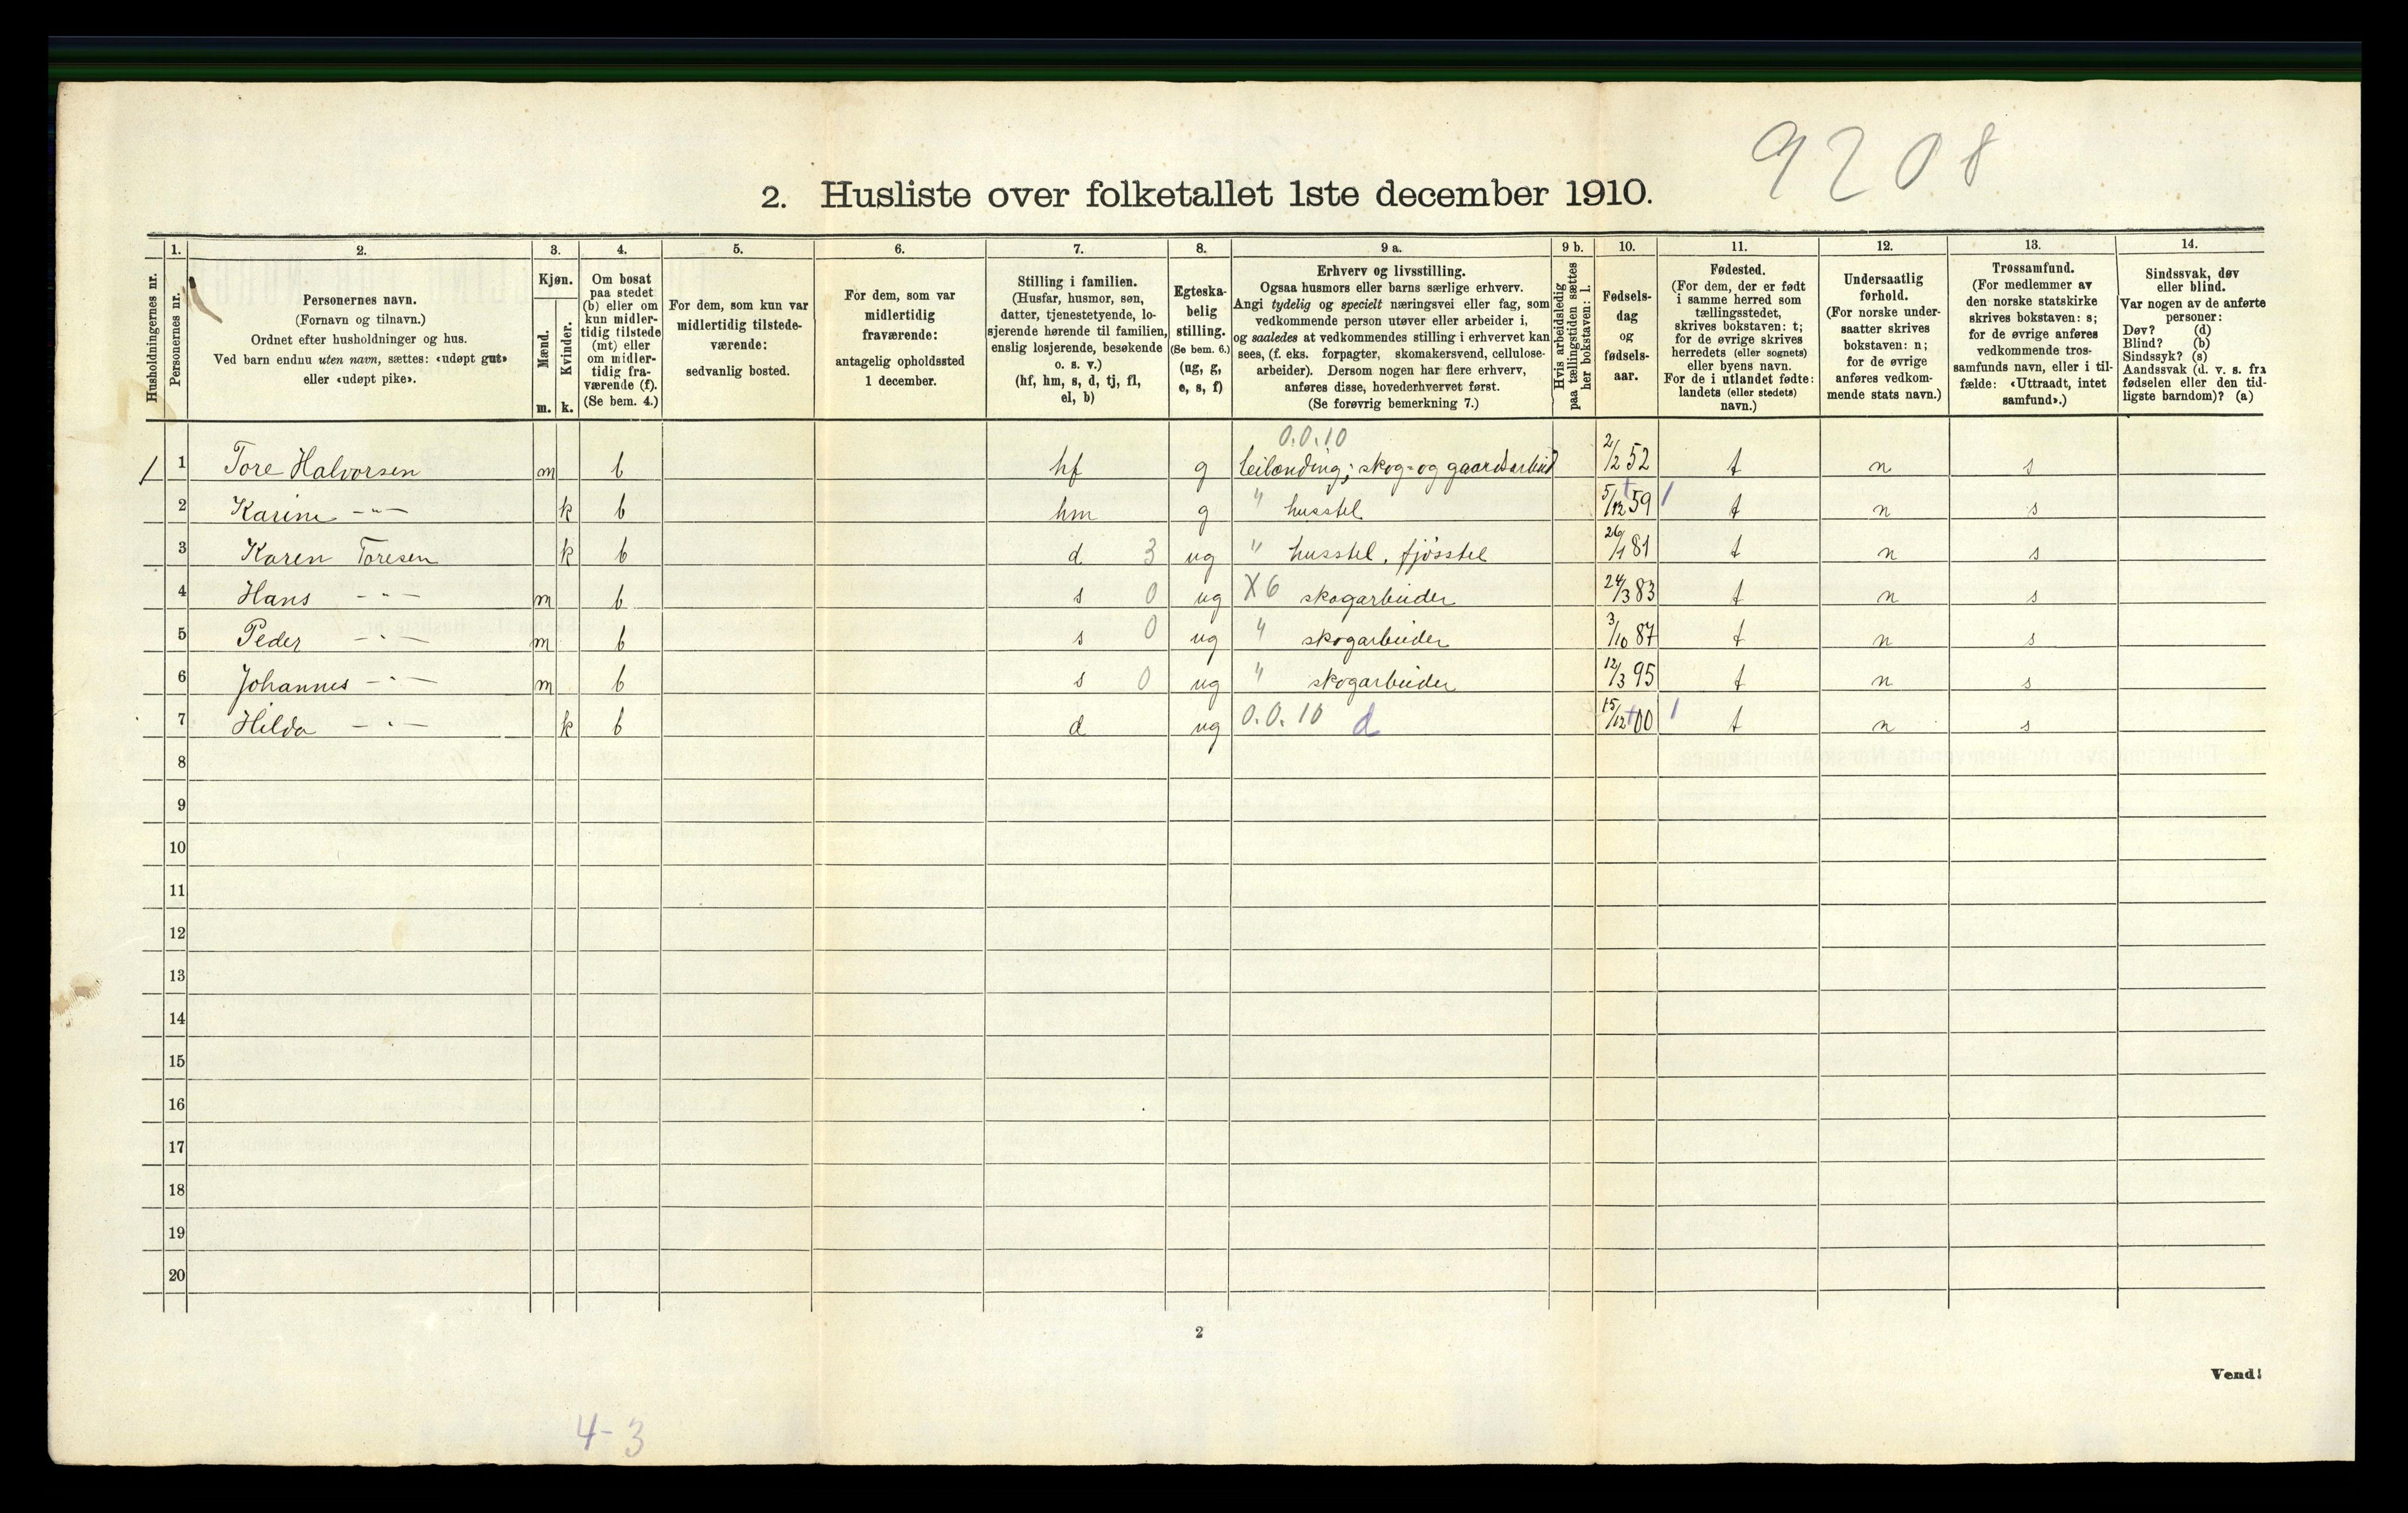 9208
2. Husliste over folketallet 1ste december 1910.
Husholdningernes nr.
1.
Personernes nr.
2.
Personernes navn.
(Fornavn og tilnavn.)
Ordnet efter husholdninger og hus.
Ved barn endnu uten navn, sættes: «udøpt gut»
eller «udøpt pike».
3.
Kjøn.
Mænd.
Kvinder.
m. k.
4.
Om bosat
paa stedet
(b) eller om
kun midler-
tidig tilstede
(mt) eller
om midler-
tidig fra-
værende (f).
(Se bem. 4.)
5.
For dem, som kun var
midlertidig tilstede-
værende:
sedvanlig bosted.
6.
For dem, som var
midlertidig
fraværende:
antagelig opholdssted
1 december.
7.
Stilling i familien.
(Husfar, husmor, søn,
datter, tjenestetyende, lo-
sjerende hørende til familien,
enslig losjerende, besøkende
o. s. v.)
(hf, hm, s, d, tj, fl,
el, b)
8.
Egteska-
belig
stilling.
(Se bem. 6.)
(ug, g,
e, s, f)
9 a.
Erhverv og livsstilling.
Ogsaa husmors eller barns særlige erhverv.
Angi tydelig og specielt næringsvei eller fag, som
vedkommende person utøver eller arbeider i,
og saaledes at vedkommendes stilling i erhvervet kan
sees, (f. eks. forpagter, skomakersvend, cellulose-
arbeider). Dersom nogen har flere erhverv,
anføres disse, hovederhvervet først.
(Se forøvrig bemerkning 7.)
9 b.
Hvis arbeidsledig
paa tællingstiden sættes
her bokstaven: l.
10.
Fødsels-
dag
og
fødsels-
aar.
11.
Fødested.
(For dem, der er født
i samme herred som
tællingsstedet,
skrives bokstaven: t;
for de øvrige skrives
herredets (eller sognets)
eller byens navn.
For de i utlandet fødte:
landets (eller stedets)
navn.)
12.
Undersaatlig
forhold.
(For norske under-
saatter skrives
bokstaven: n;
for de øvrige
anføres vedkom-
mende stats navn.)
13.
Trossamfund.
(For medlemmer av
den norske statskirke
skrives bokstaven: s;
for de øvrige anføres
vedkommende tros-
samfunds navn, eller i til-
fælde: «Uttraadt, intet
samfund».)
14.
Sindssvak, døv
eller blind.
Var nogen av de anførte
personer:
Døv? (d)
Blind? (b)
Sindssyk? (s)
Aandssvak (d. v. s. fra
fødselen eller den tid-
ligste barndom)? (a)
0.0.10
1 1 Tore Halvorsen m b hf g leilænding; skog- og gaardsarbeid 2/2 52 t n s
2 Karine -"- k b hm g " husstel 5/12 59 1 t n s
3 Karen Toresen k b d 3 ug " husstel, fjøsstel 26/1 81 t n s
4 Hans -"- m b s 0 ug X6 skogarbeider 24/3 83 t n s
5 Peder -"- m b s 0 ug " skogarbeider 3/10 87 t n s
6 Johannes -"- m b s 0 ug " skogarbeider 12/3 95 t n s
7 Hilda -"- k b d ug 0.0.10 d 15/12 00 1 t n s
8
9
10
11
12
13
14
15
16
17
18
19
20
2
Vend!
4-3